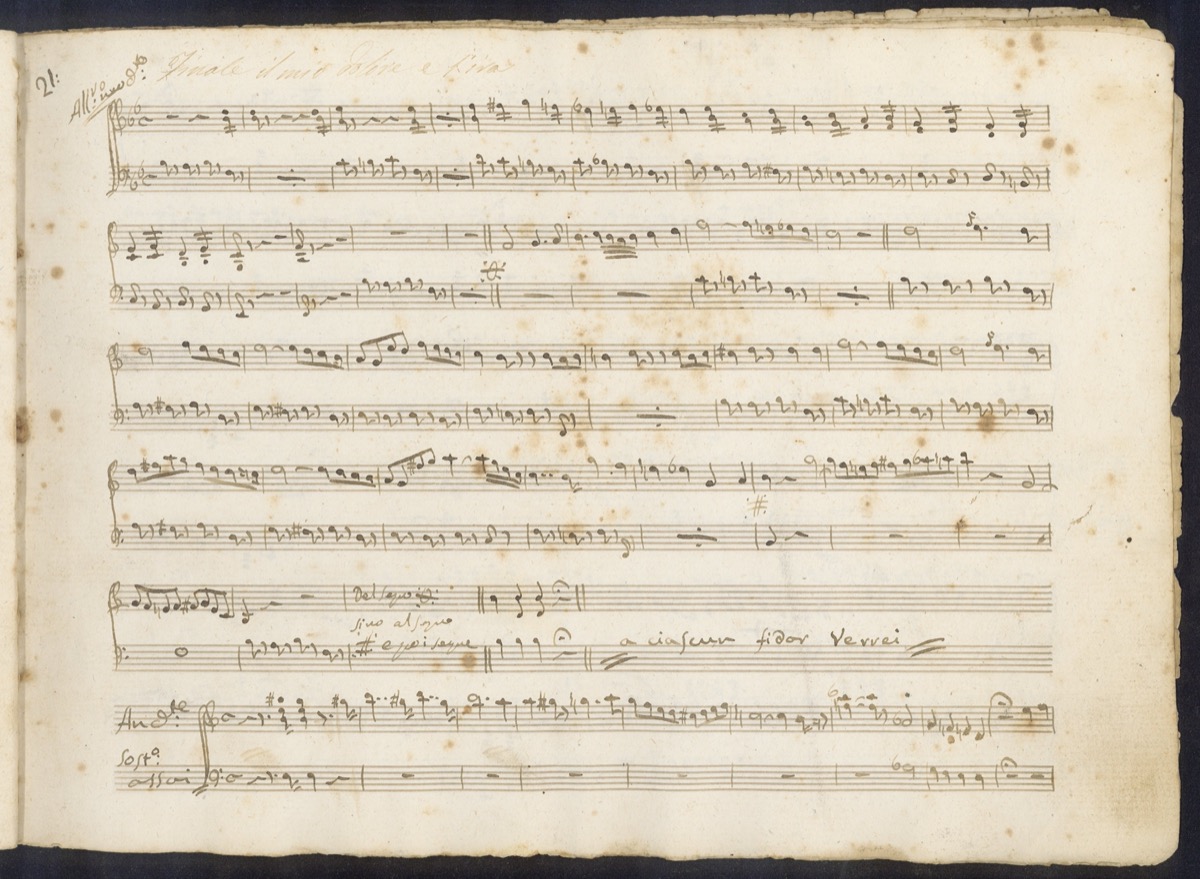 21:
All.vo
Finale il mio dolore e l'ira
Del Segno
sino al Segno
# e poi segue
a ciascun fidar verrei
And.te
Sost.o
assai